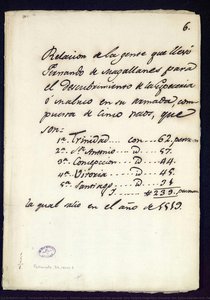 6.
Relacion de la gente que llevó
Fernando de Magallanes para
el descubrimiento de la Especeria
ó Maluco en su armada, com
puesta de cinco naos, que
son:
1ª Trinidad con 62. person
2ª Sn. Antonio D. 57.
3ª Concepcion D. 44.
4ª Vitoria D. 45.
5ª Santiago D. 31
239. person
la qual salio en el año de 1519.